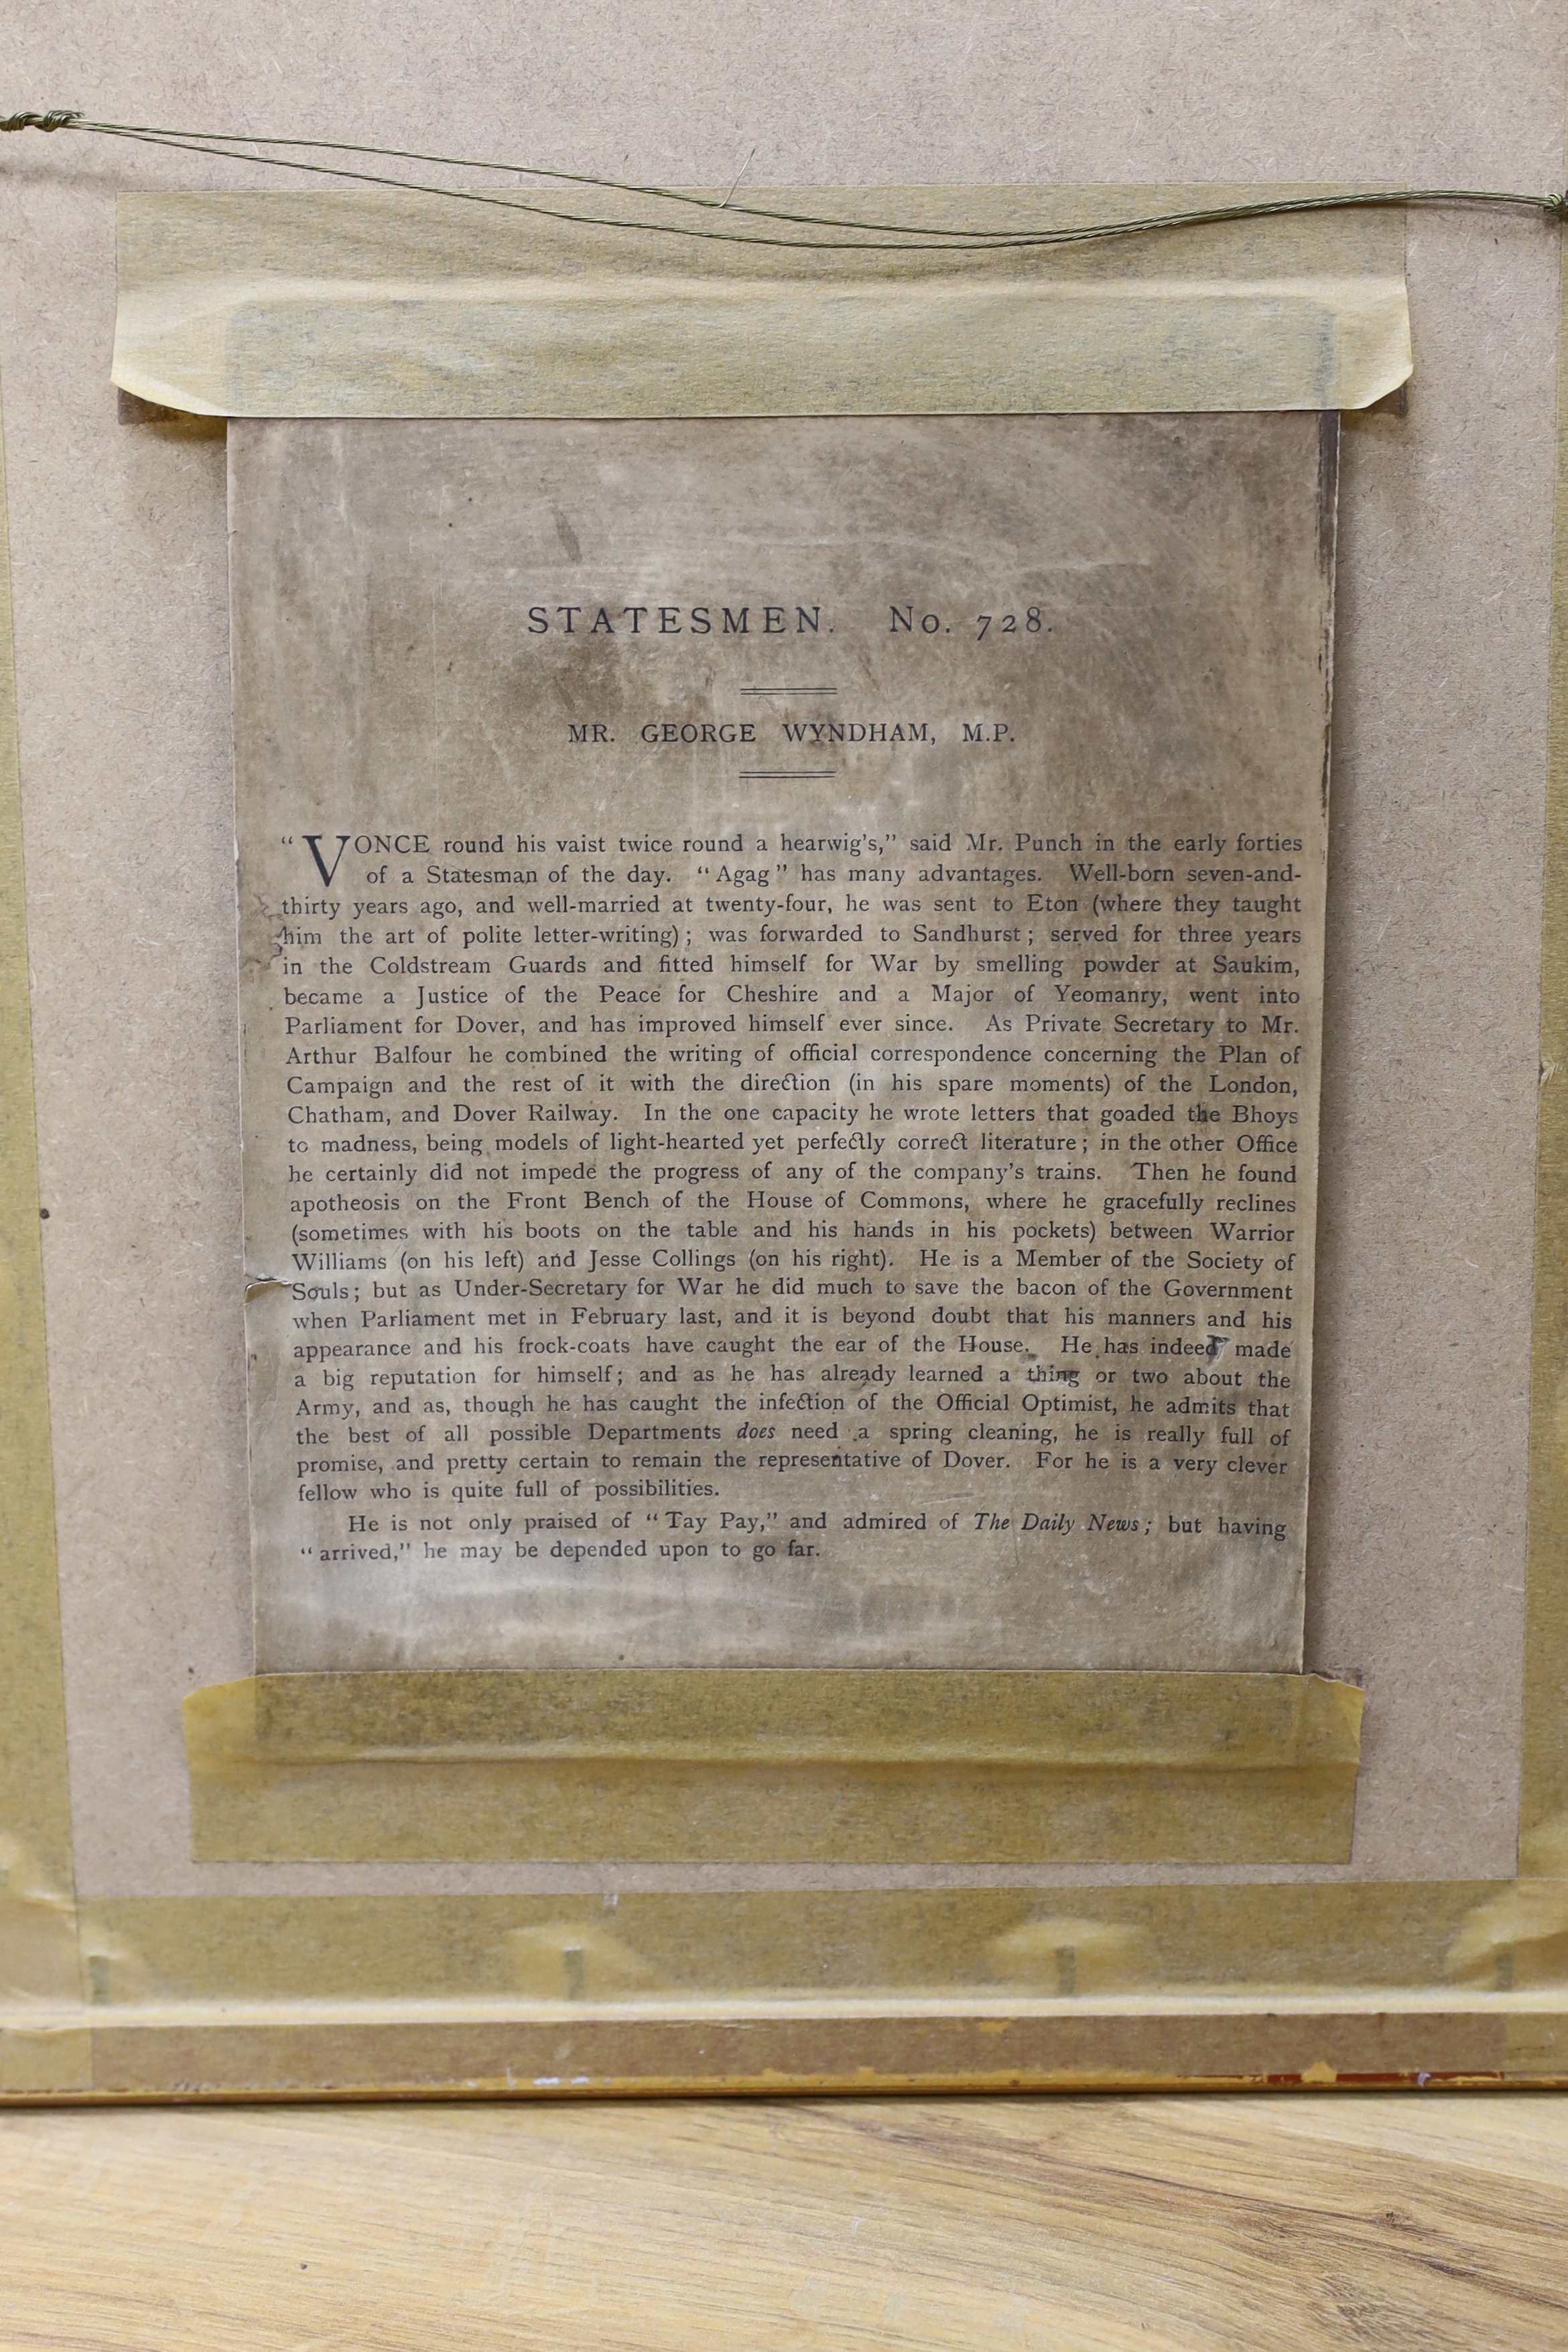 STATESMEN. No. 728.
MR. GEORGE WYNDHAM, M.P.
“VONCE round his vaist twice round a hearwig's,” said Mr. Punch in the early forties
of a Statesman of the day. “Agag” has many advantages. Well-born seven-and-
thirty years ago, and well-married at twenty-four, he was sent to Eton (where they taught
him the art of polite letter-writing); was forwarded to Sandhurst; served for three years
in the Coldstream Guards and fitted himself for War by smelling powder at Saukim,
became a Justice of the Peace for Cheshire and a Major of Yeomanry, went into
Parliament for Dover, and has improved himself ever since. As Private Secretary to Mr.
Arthur Balfour he combined the writing of official correspondence concerning the Plan of
Campaign and the rest of it with the direction (in his spare moments) of the London,
Chatham, and Dover Railway. In the one capacity he wrote letters that goaded the Bhoys
to madness, being models of light-hearted yet perfectly correct literature; in the other Office
he certainly did not impede the progress of any of the company's trains. Then he found
apotheosis on the Front Bench of the House of Commons, where he gracefully reclines
(sometimes with his boots on the table and his hands in his pockets) between Warrior
Williams (on his left) and Jesse Collings (on his right). He is a Member of the Society of
Souls; but as Under-Secretary for War he did much to save the bacon of the Government
when Parliament met in February last, and it is beyond doubt that his manners and his
appearance and his frock-coats have caught the ear of the House. He has indeed made
a big reputation for himself; and as he has already learned a thing or two about the
Army, and as, though he has caught the infection of the Official Optimist, he admits that
the best of all possible Departments does need a spring cleaning, he is really full of
promise, and pretty certain to remain the representative of Dover. For he is a very clever
fellow who is quite full of possibilities.
He is not only praised of “Tay Pay,” and admired of The Daily News; but having
“arrived,” he may be depended upon to go far.